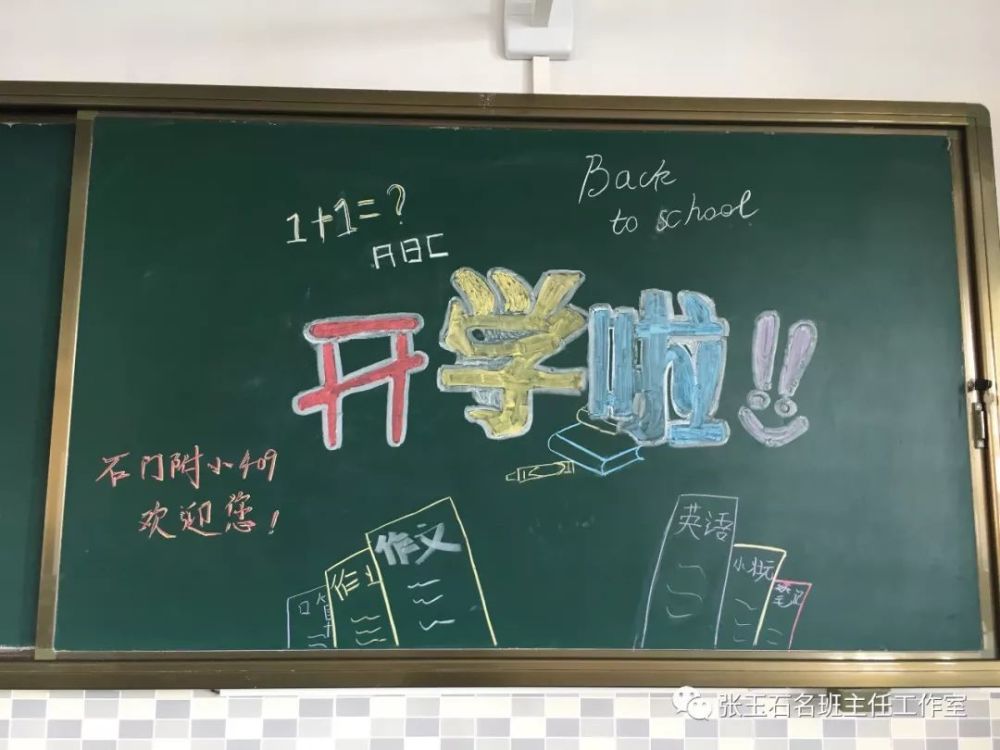 Back
to school
1+1=?
ABC
开学啦!!
石门附小409
欢迎您!
作文
作业
口算
英语
小状元
笔记
张玉石名班主任工作室